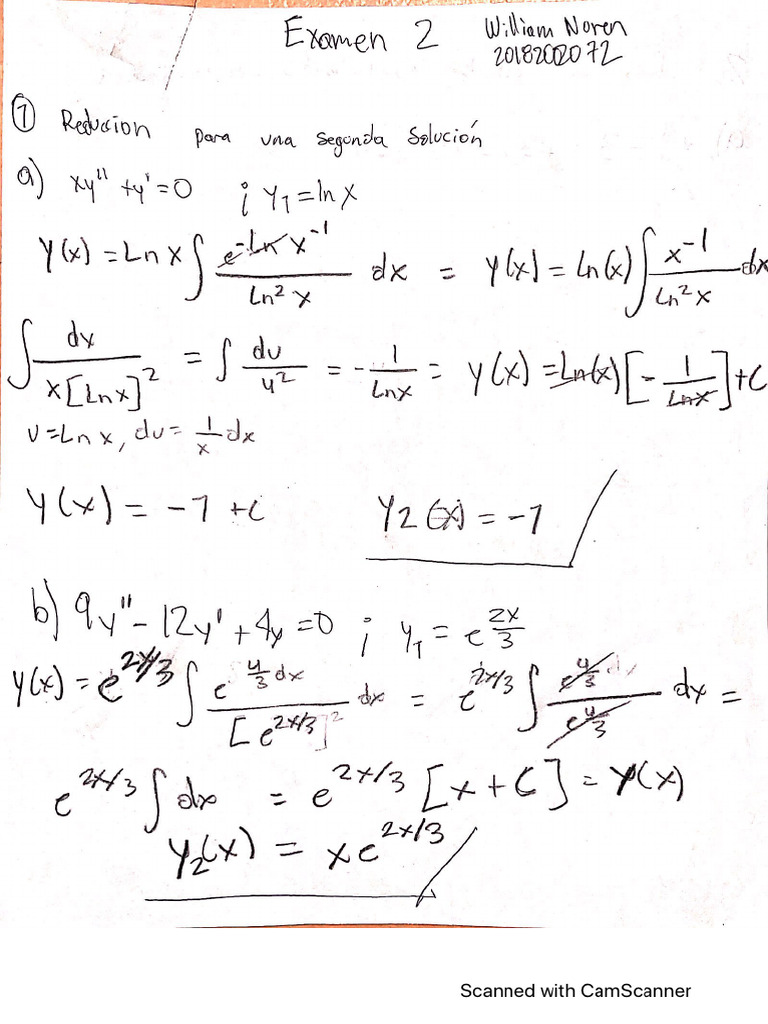 Examen 2
William Noren
20182002072
① Reduccion para una segunda solución
a) xy'' + y' = 0 ; y₁ = ln x
y(x) = Ln x ∫ e^{-Ln x^{-1}} / Ln² x dx = y(x) = ln(x) ∫ x^{-1} / Ln² x dx
∫ dx / x[Ln x]² = ∫ du / u² = - 1 / Ln x = y(x) = Ln(x) [- 1 / Ln x] + C
u = Ln x, du = 1/x dx
y(x) = -1 + C
y2(x) = -1
b) 9y'' - 12y' + 4y = 0 ; y₁ = e^{2x/3}
y(x) = e^{2x/3} ∫ e^{4/3 dx} / [e^{2x/3}]² dx = e^{2x/3} ∫ e^{4/3 dx} / e^{4/3} dx =
e^{2x/3} ∫ dx = e^{2x/3} [x + C] = y(x)
y₂(x) = x e^{2x/3}
Scanned with CamScanner